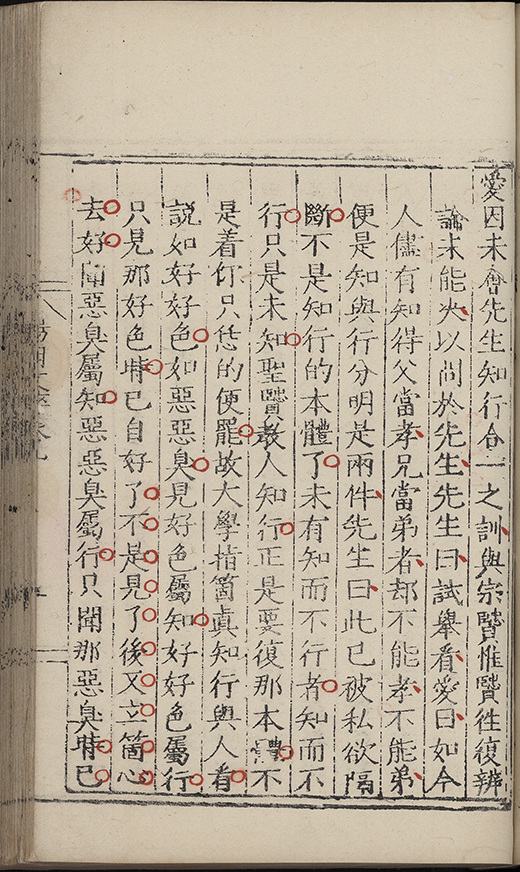 愛因未會先生知行合一之訓與宗賢惟賢徃復辨
論未能决以問於先生先生曰試舉看愛曰如今
人儘有知得父當孝兄當弟者却不能孝不能弟
便是知與行分明是兩件先生曰此已被私欲隔
斷不是知行的本體了未有知而不行者知而不
行只是未知聖賢教人知行正是要復那本體不
是着你只恁的便罷故大學指箇真知行與人看
説如好好色如惡惡臭見好色屬知好好色屬行
只見那好色時已自好了不是見了後又立箇心
去好聞惡臭屬知惡惡臭屬行只聞那惡臭時已